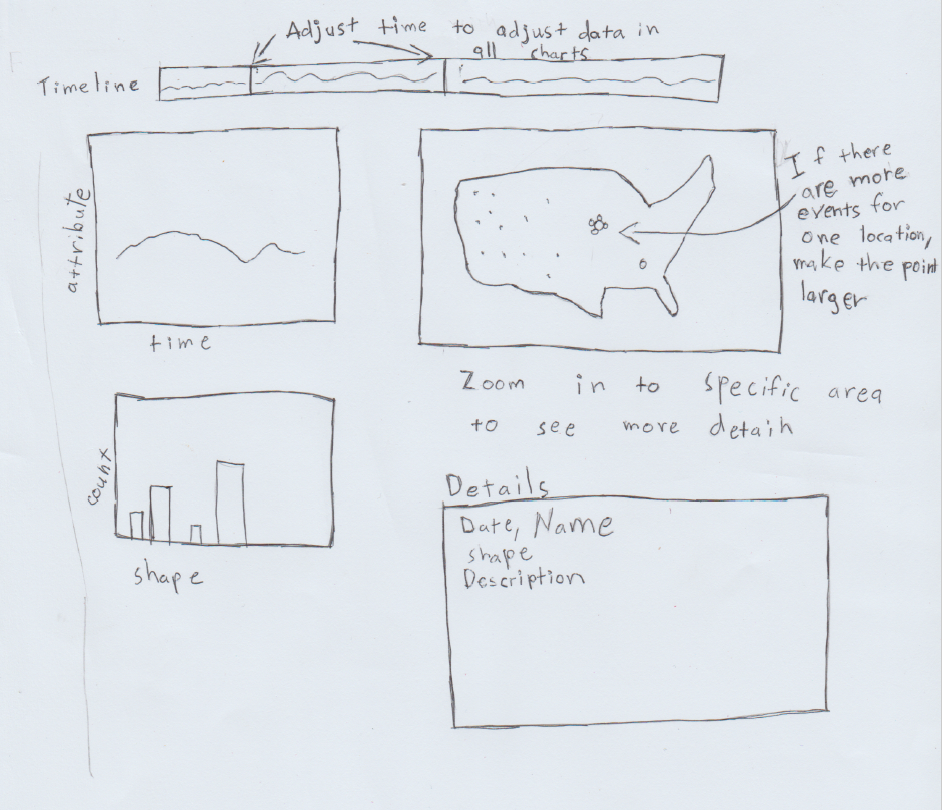 Adjust time to adjust data in
all charts
Timeline
attribute
time
If there
are more
events for
one location,
make the point
larger
Zoom in to specific area
to see more detail
count
shape
Details
Date, Name
shape
Description